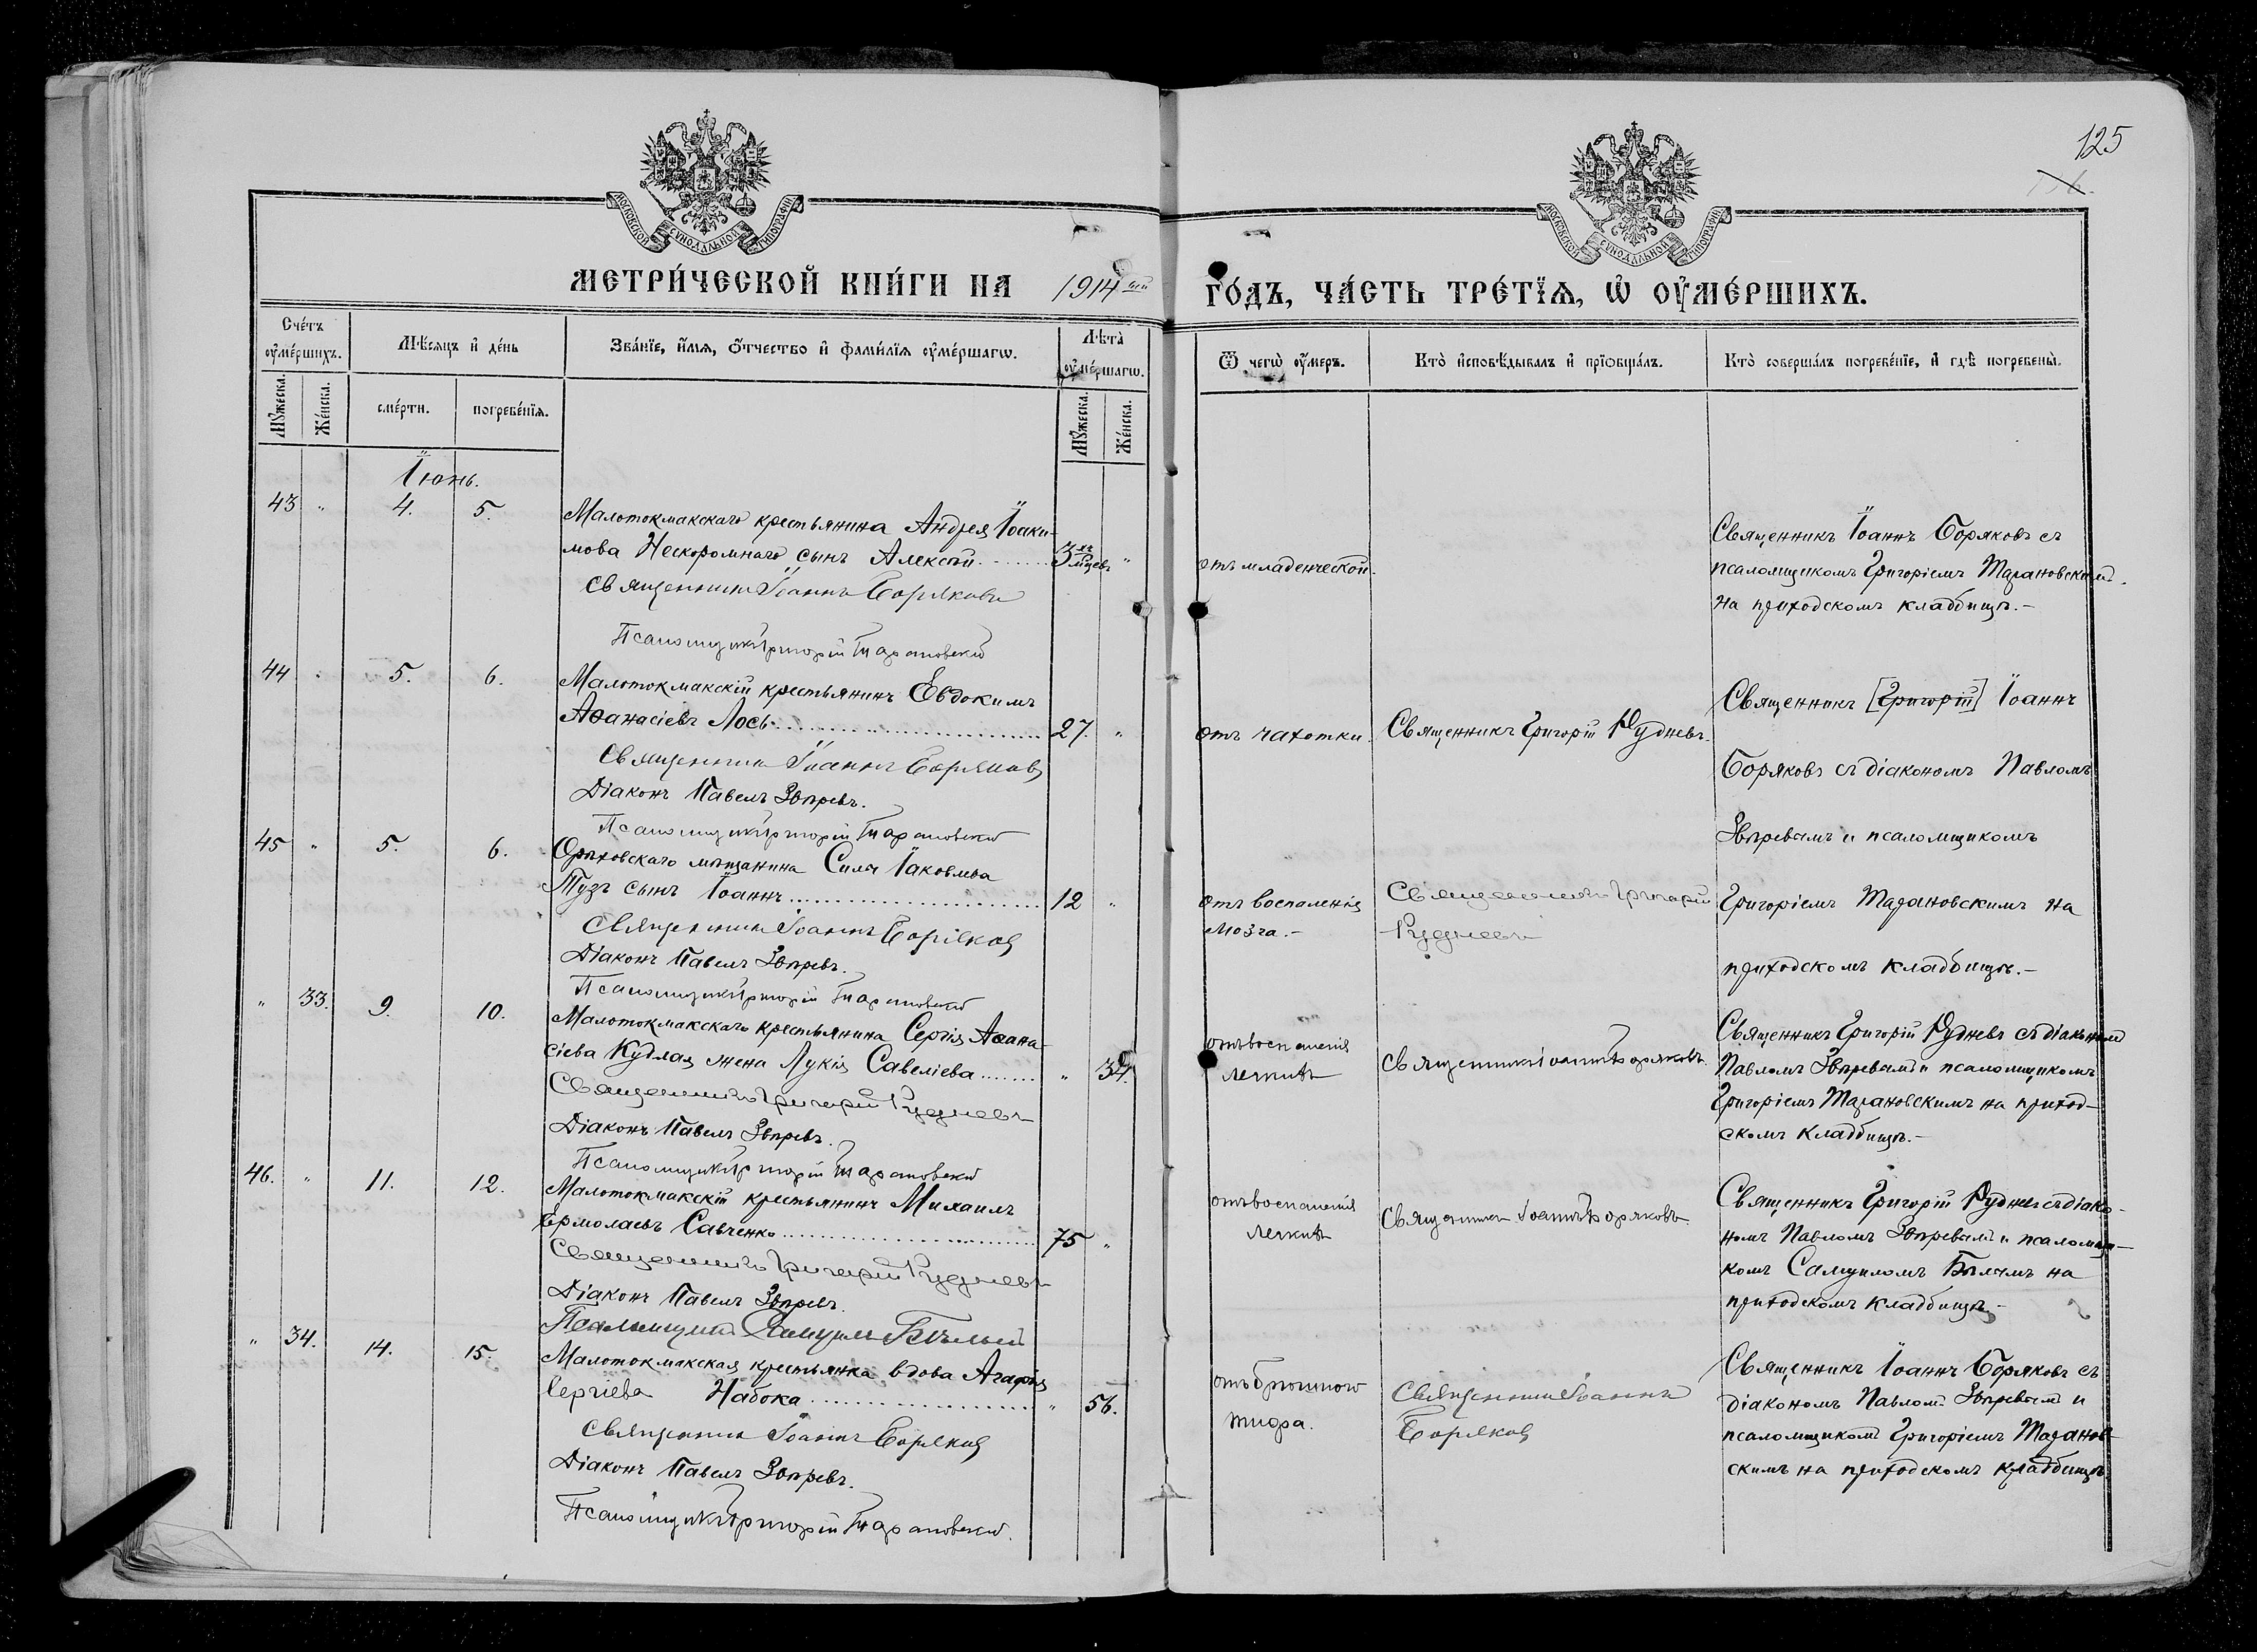 125
МОСКОВСКОЙ СѴНОДАЛЬНОЙ ТИПОГРАФІИ
МОСКОВСКОЙ СѴНОДАЛЬНОЙ ТИПОГРАФІИ
МЕТРИ́ЧЕСКОЙ КНИ́ГИ НА 1914 ый ГО́ДЪ, ЧА́СТЬ ТРЕ́ТЇѦ, Ѡ҆ ОУ҆МЕ́РШИХЪ.
Сче́тъ оу҆ме́ршихъ.
Мѣ́сѧцъ и҆ де́нь
Зва́нїе, и҆́мѧ, ѻ҆́тчество и҆ фами́лїѧ оу҆ме́ршагѡ.
Лѣта̀ оу҆ме́ршагѡ.
Ѿ чегѡ̀ оу҆́меръ.
Кто̀ и҆сповѣ́дывалъ и҆ прїѡбща́лъ.
Кто̀ соверша́лъ погребе́нїе, и҆ гдѣ̀ погребены̀.
Мꙋ́жеска.
Же́нска.
сме́рти.
погребе́нїѧ.
Мꙋ́жеска.
Же́нска.
Іюнь.
43 " 4. 5.
Малотокмакскаго крестьянина Андрея Іоаки-
мова Нескоромнаго сынъ Алексѣй 3 хъ мѣцевъ "
Священникъ Іоаннъ Боряковъ
Псаломщикъ Григорій Тарановскій
отъ младенческой.
Священникъ Іоаннъ Боряковъ съ
псаломщикомъ Григоріемъ Тарановскимъ
на приходскомъ кладбищѣ.-
44 " 5. 6.
Малотокмакскій крестьянинъ Евдокимъ
Аѳанасіевъ Лось 27. "
Священникъ Іоаннъ Боряковъ
Діаконъ Павелъ Звѣревъ.
Псаломщикъ Григорій Тарановскій
отъ чахотки.
Священникъ Григорій Рудневъ.
Священникъ [Григорій] Іоаннъ
Боряковъ съ діакономъ Павломъ
Звѣревымъ и псаломщикомъ
Григоріемъ Тарановскимъ на
приходскомъ кладбищѣ.-
45 " 5. 6.
Орѣховскаго мѣщанина Силы Іаковлева
Тузъ сынъ Іоаннъ 12 "
Священникъ Іоаннъ Боряковъ
Діаконъ Павелъ Звѣревъ.
Псаломщикъ Григорій Тарановскій
отъ воспаленія
мозга.-
Священникъ Григорій
Рудневъ
" 33. 9. 10.
Малотокмакскаго крестьянина Сергія Аѳана-
сіева Кудлая жена Лукія Савеліева " 34.
Священникъ Григорій Рудневъ
Діаконъ Павелъ Звѣревъ.
Псаломщикъ Григорій Тарановскій
отъ воспаленія
легкихъ
Священникъ Іоаннъ Боряковъ
Священникъ Григорій Рудневъ съ діакономъ
Павломъ Звѣревымъ и псаломщикомъ
Григоріемъ Тарановскимъ на приход-
скомъ кладбищѣ.-
46. " 11. 12.
Малотокмакскій крестьянинъ Михаилъ
Ермолаевъ Савченко 75 "
Священникъ Григорій Рудневъ
Діаконъ Павелъ Звѣревъ.
Псаломщикъ Самуилъ Бѣлый
отъ воспаленія
легкихъ
Священникъ Іоаннъ Боряковъ
Священникъ Григорій Рудневъ съ діако-
номъ Павломъ Звѣревымъ и псаломщи-
комъ Самуиломъ Бѣлымъ на
приходскомъ кладбищѣ.-
" 34. 14. 15.
Малотокмакская крестьянка вдова Агафія
Сергіева Набока " 56.
Священникъ Іоаннъ Боряковъ
Діаконъ Павелъ Звѣревъ.
Псаломщикъ Григорій Тарановскій.
отъ брюшного
тифа.
Священникъ Іоаннъ
Боряковъ
Священникъ Іоаннъ Боряковъ съ
діакономъ Павломъ Звѣревымъ и
псаломщикомъ Григоріемъ Таранов-
скимъ на приходскомъ кладбищѣ